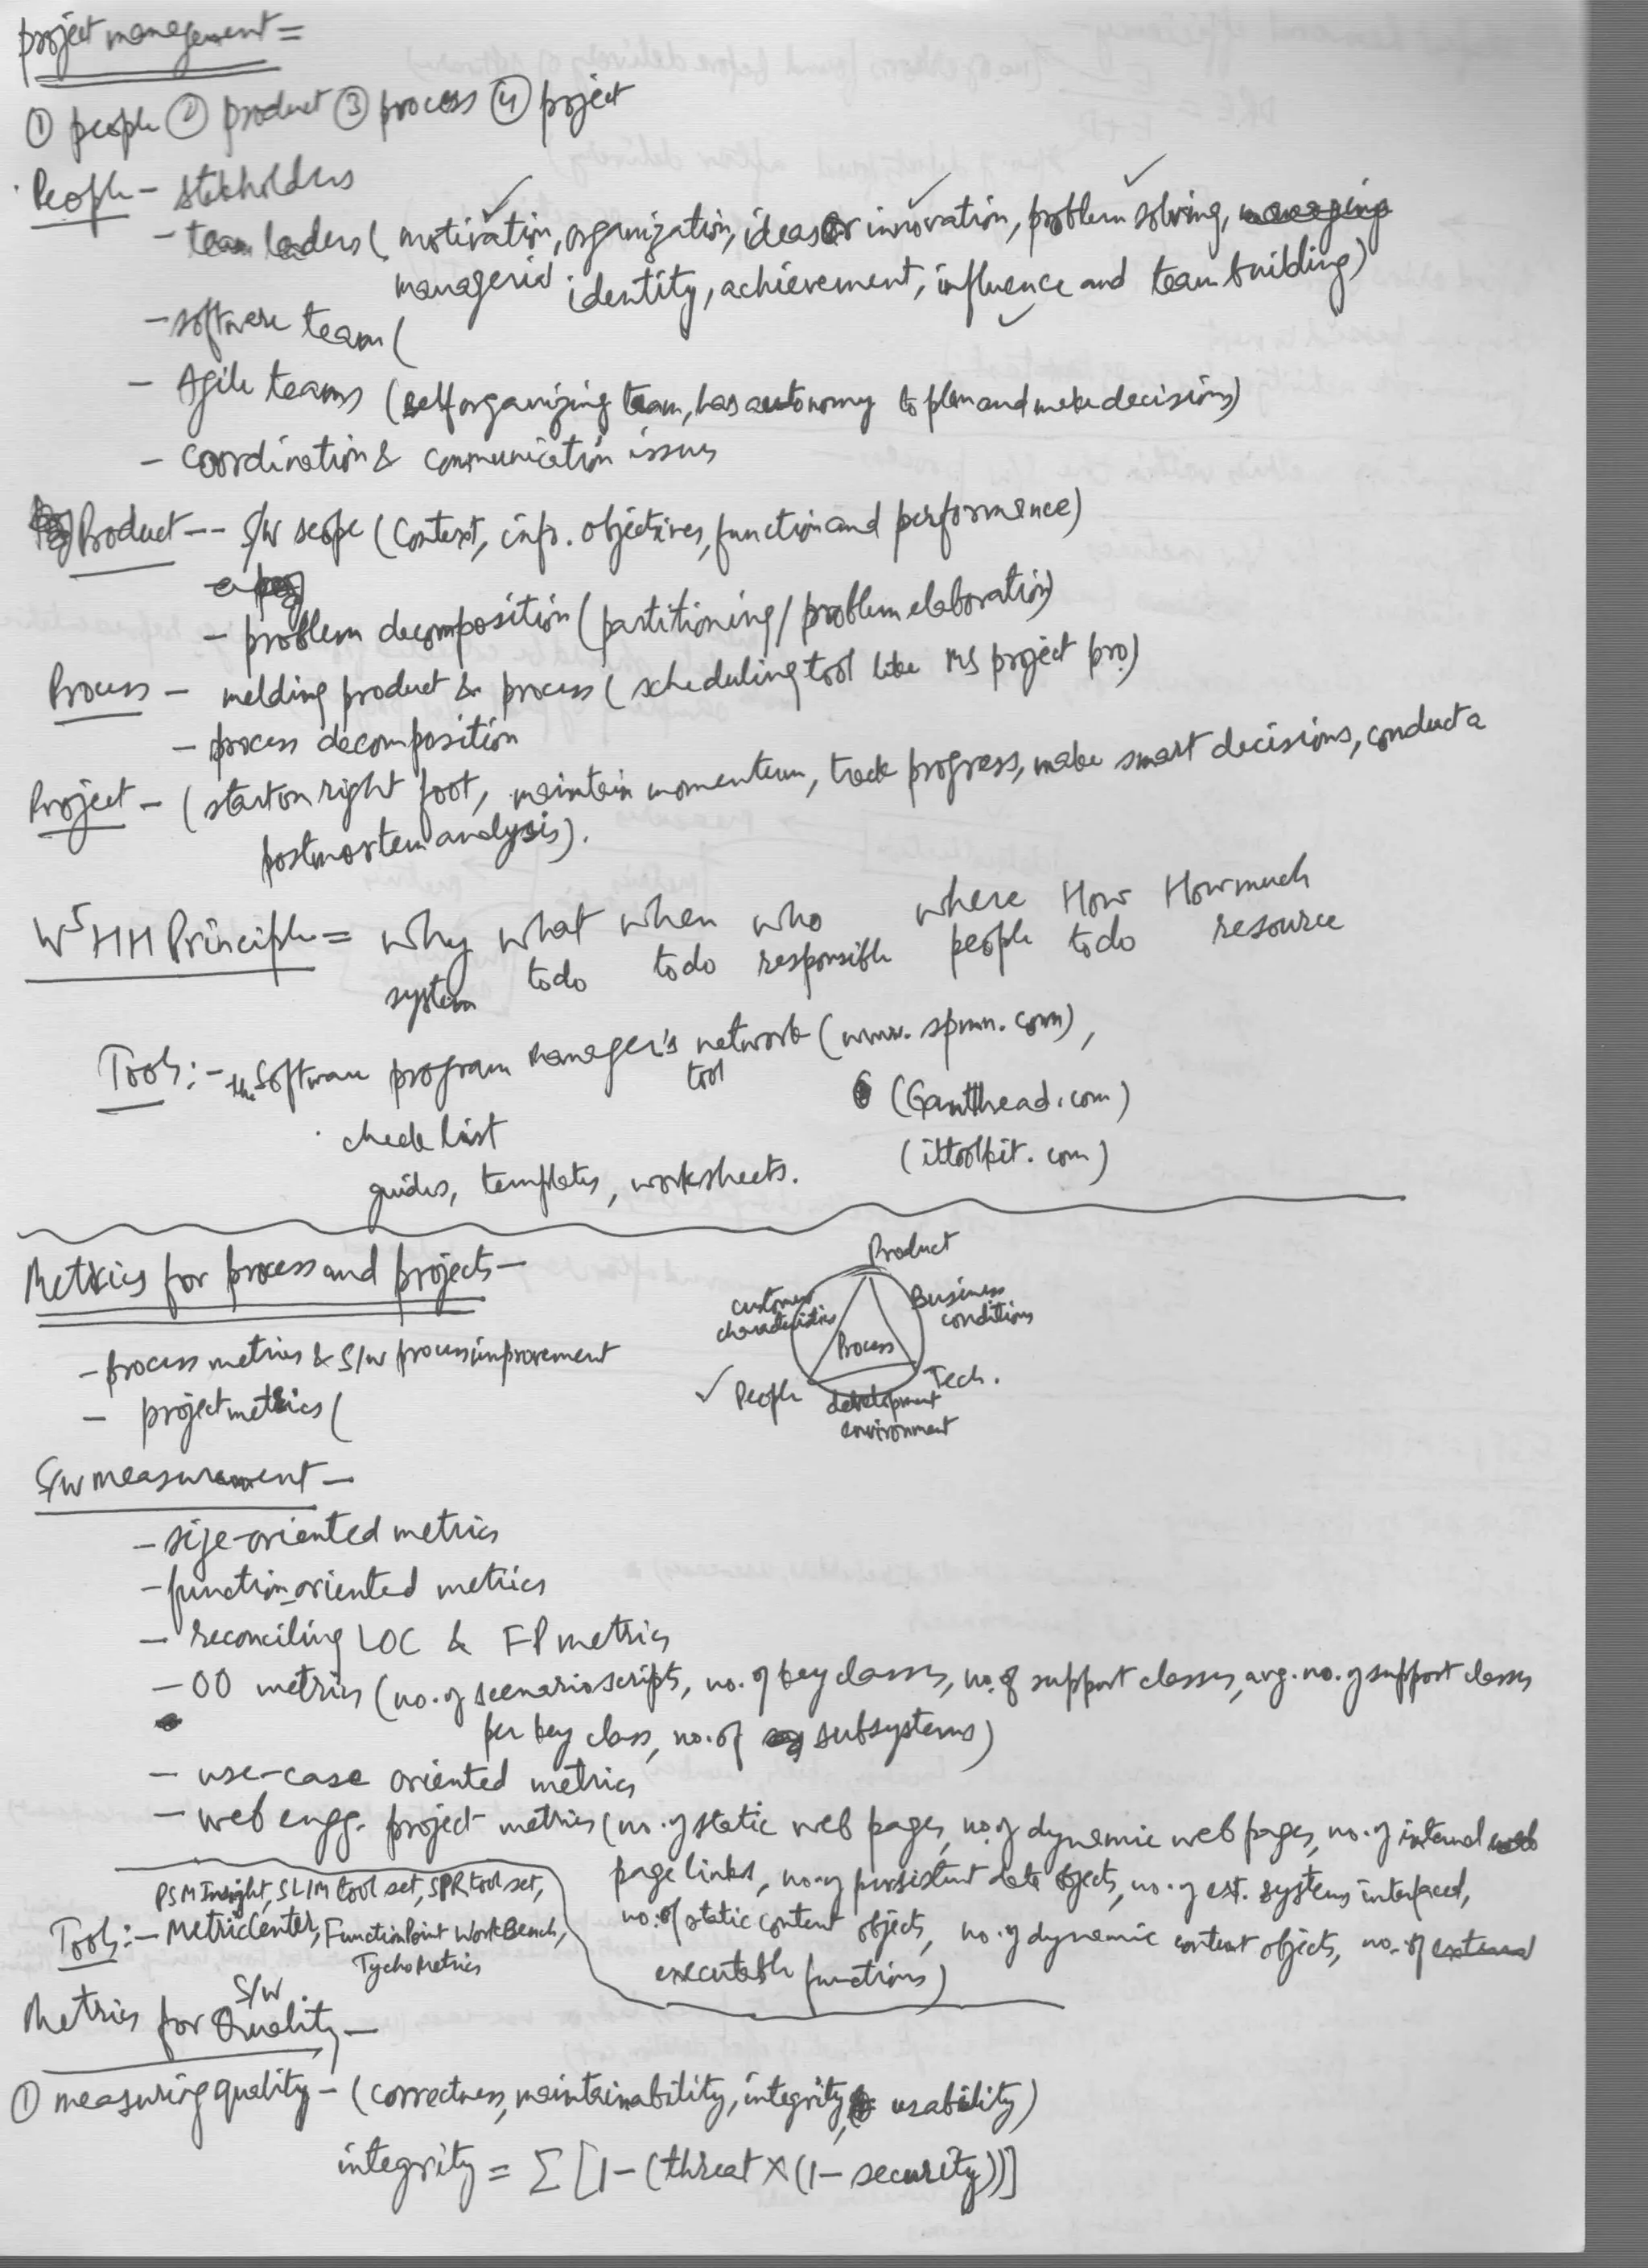 project management =
① people ② product ③ process ④ project
People - stakholders
- team leaders ( motivation, organization, ideas or innovation, problem solving,
managerial identity, achievement, influence and team building)
- software team (
- Agile teams (self organizing team, has autonomy to plan and make decisions)
- coordination & communication issues
Product -- S/W scope (Context, info. objectives, function and performance)
- problem decomposition (partitioning / problem elaboration)
Process - melding product & process ( scheduling tool like MS project pro)
- process decomposition
Project - (start on right foot, maintain momentum, track progress, make smart decisions, conduct a
postmortem analysis).
W⁵HH Principle = why what when who where How How much
system to do to do responsible people to do resource
Tools :- the Software program manager's network (www.spmn.com),
tool
(Gantthead.com)
check list
(ittoolkit.com)
guides, templates, worksheets.
Metrics for process and projects -
Product
customer characteristics
Business conditions
Process
People
Tech.
development environment
- process metrics & S/W process improvement
- project metrics (
S/W measurement -
- size-oriented metrics
- function-oriented metrics
- reconciling LOC & FP metrics
- OO metrics (no. of scenario scripts, no. of key classes, no. of support classes, avg. no. of support classes
per key class, no. of subsystems)
- use-case oriented metrics
- web engg. project metrics (no. of static web pages, no. of dynamic web pages, no. of internal
page links, no. of persistent data objects, no. of ext. systems interfaced,
no. of static content objects, no. of dynamic content objects, no. of
executable functions)
PSM Insight, SLIM tool set, SPR tool set,
Tools :- MetricCenter, FunctionPoint WorkBench,
TychoMetrics
Metrics for S/W Quality -
① measuring quality - (correctness, maintainability, integrity, usability)
integrity = Σ [1 - (threat × (1 - security))]